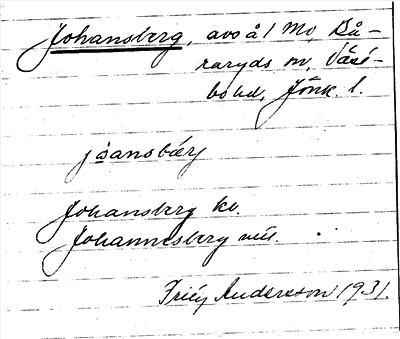 Johansberg, avs å 1 Mo, Bå-
raryds sn, Väst-
bo hd, Jönk. l.
jòansbærj
Johansberg kv.
Johannesberg
Frléy Andersson 1931.